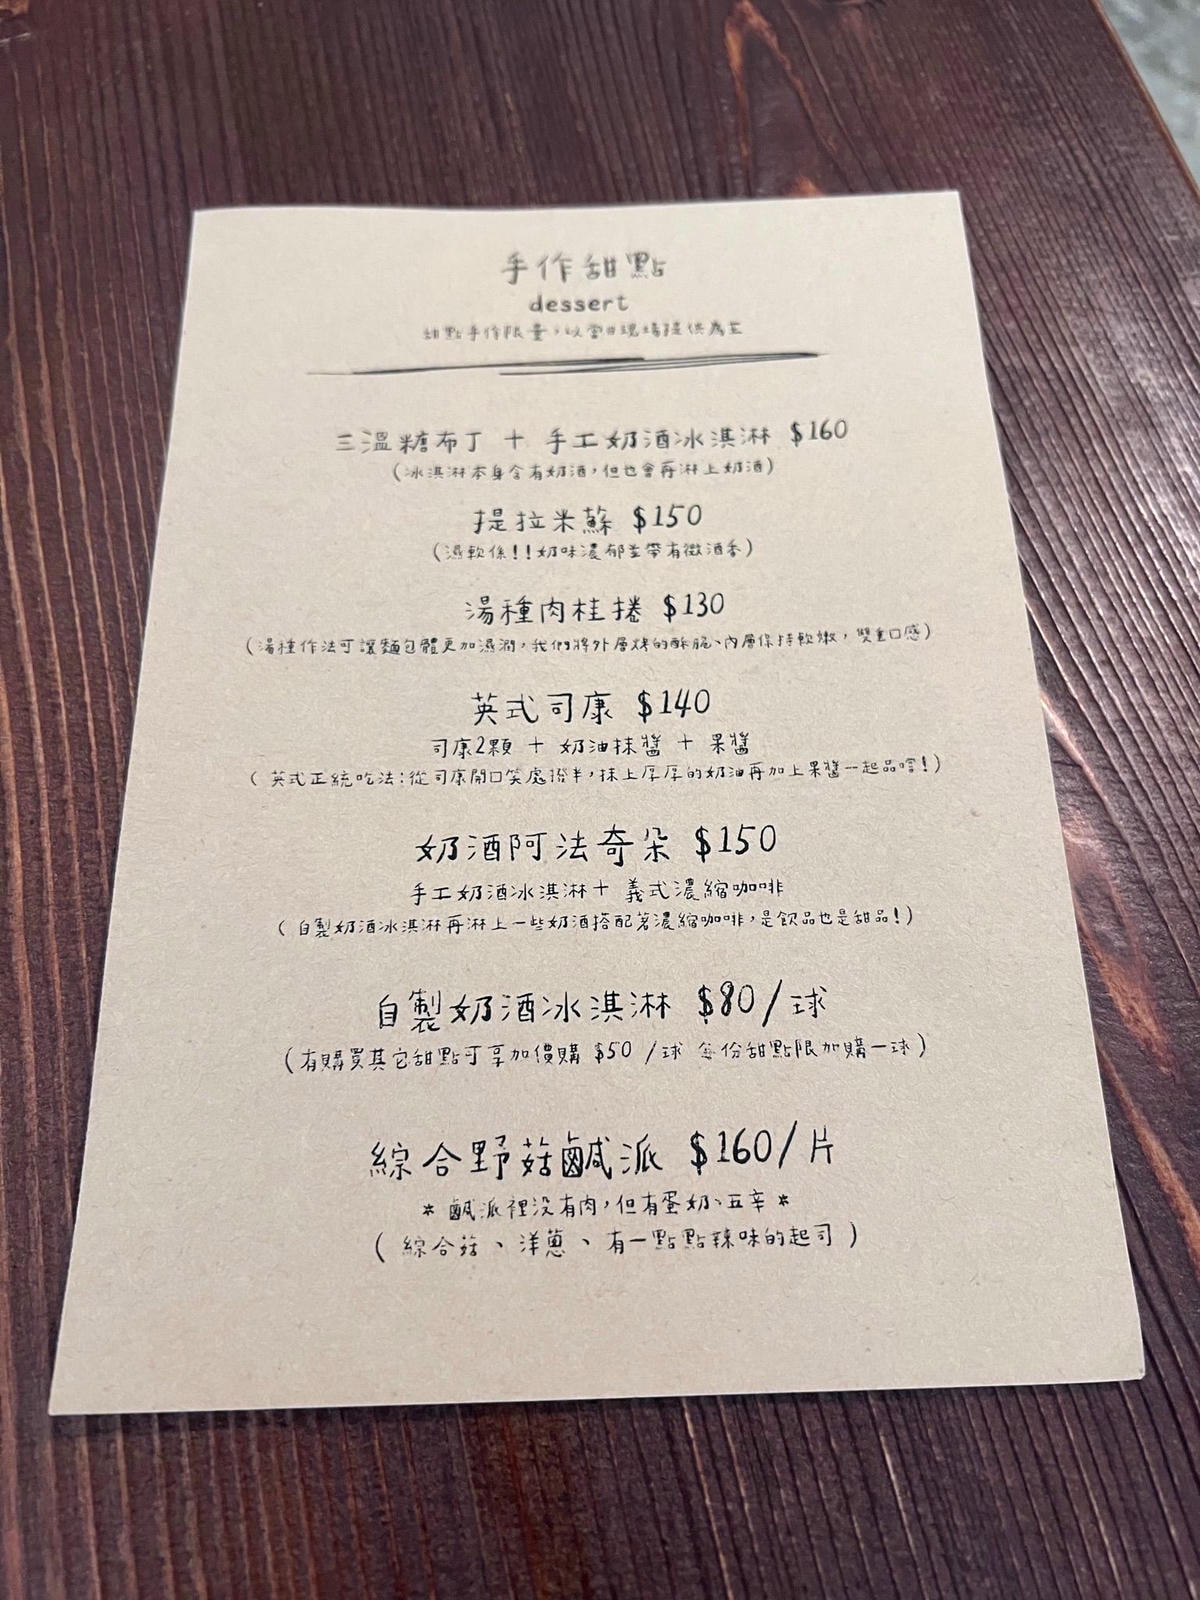 手作甜點
dessert
甜點手作限量，以當日現場提供為主
三溫糖布丁 + 手工奶酒冰淇淋 $160
(冰淇淋本身含有奶酒，但也會再淋上奶酒)
提拉米蘇 $150
(濕軟係!!奶味濃郁並帶有微酒香)
湯種肉桂捲 $130
(湯種作法可讓麵包體更加濕潤，我們將外層烤的酥脆、內層保持軟嫩，雙重口感)
英式司康 $140
司康2顆 + 奶油抹醬 + 果醬
(英式正統吃法:從司康開口笑處撥半，抹上厚厚的奶油再加上果醬一起品嚐!)
奶酒阿法奇朵 $150
手工奶酒冰淇淋+ 義式濃縮咖啡
(自製奶酒冰淇淋再淋上一些奶酒搭配著濃縮咖啡，是飲品也是甜品!)
自製奶酒冰淇淋 $80/球
(有購買其它甜點可享加價購 $50 /球 每份甜點限加購一球)
綜合野菇鹹派 $160/片
* 鹹派裡沒有肉，但有蛋奶、五辛 *
(綜合菇、洋蔥、有一點點辣味的起司)